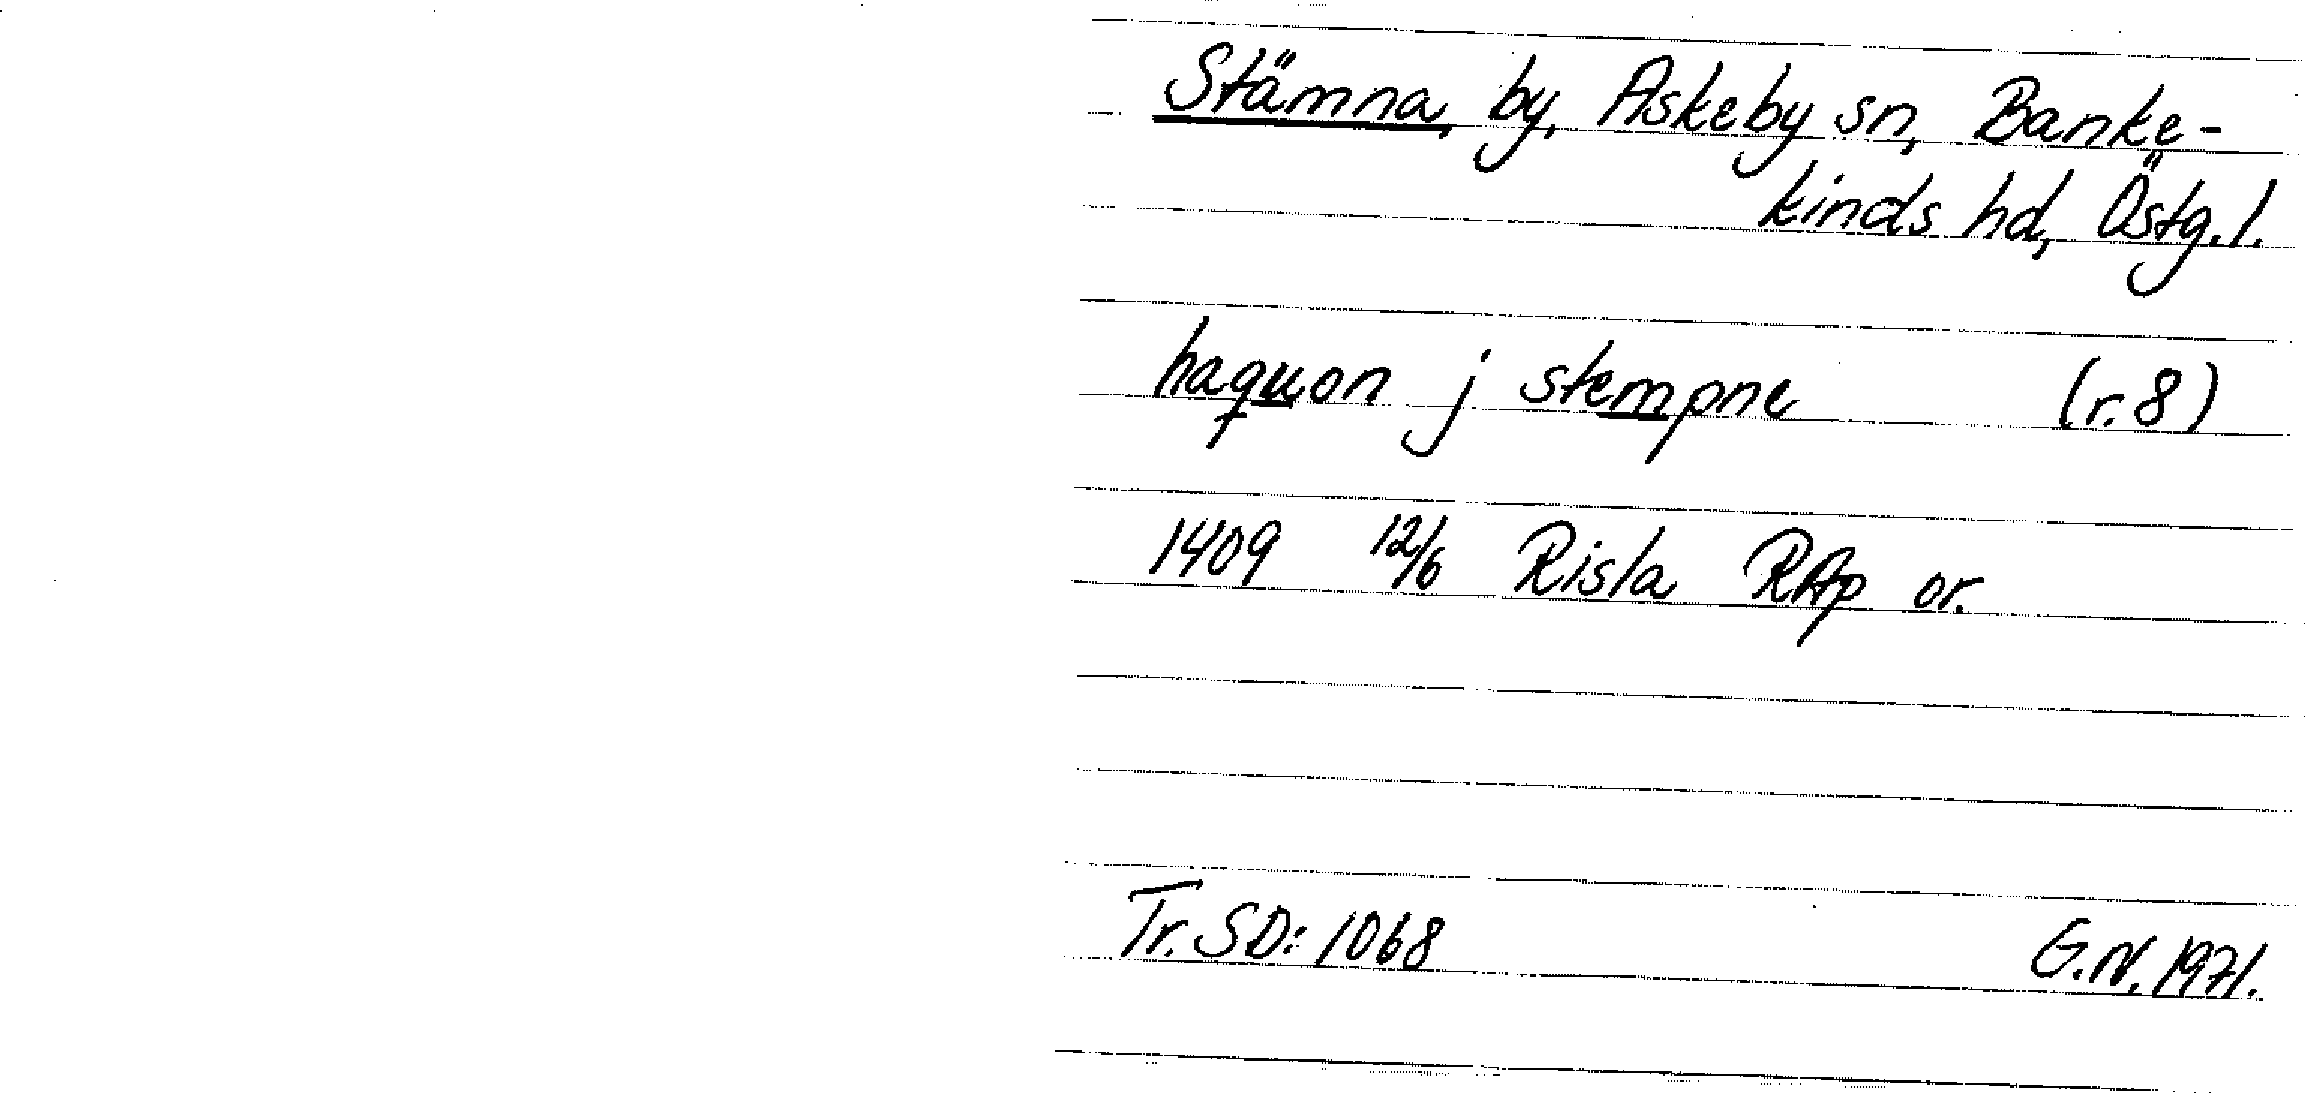 Stämna, by, Askeby sn, Banke-
kinds hd, Östg.l.
haquon j stempne (r.8)
1409 12/6 Risla RAp or.
Tr. SD: 1068 G.N. 1971.